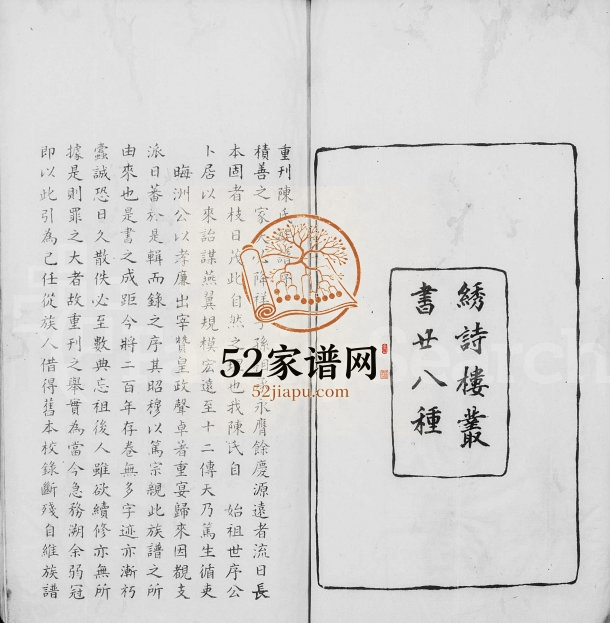 綉詩樓叢
書廿八種
重刊陳氏
積善之家 降祥 孫 永膺餘慶源遠者流日長
本固者枝日茂此自然之 也我陳氏自 始祖世序公
卜居以來詒謀燕翼規模宏遠至十二傳天乃篤生循吏
晦洲公以孝廉出宰 皇政聲卓著重宴歸來因覩支
派日蕃於是輯而錄之序其昭穆以篤宗親此族譜之所
由來也是書之成距今將二百年存卷無多字迹亦漸朽
蠹誠恐日久散佚必至數典忘祖後人雖欲續修亦無所
據是則罪之大者故重刊之舉實為當今急務溯余弱冠
即以此引為己任從族人借得舊本校錄斷殘自維族譜
52家谱网
52jiapu.com